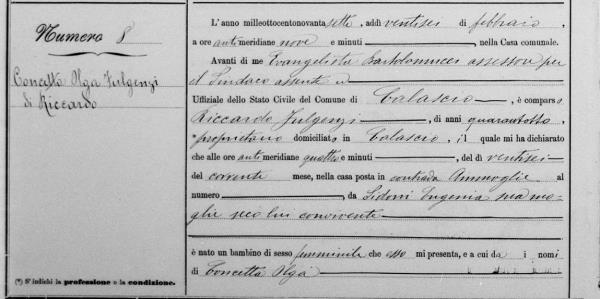 Numero 8
Concetta Olga Fulgenzi
di Riccardo
(*) S'indichi la professione o la condizione.
L'anno milleottocentonovantasette, addì ventisei di febbraio,
a ore antimeridiane nove e minuti, nella Casa comunale.
Avanti di me Evangelista Bartolomucci assessore per
il Sindaco assente
Uffiziale dello Stato Civile del Comune di Calascio, è comparso
Riccardo Fulgenzi, di anni quarantotto,
*proprietario domiciliato in Calascio, il quale mi ha dichiarato
che alle ore antimeridiane quattro e minuti, del dì ventisei
del corrente mese, nella casa posta in contrada Ammoglie al
numero, da Sidoni Eugenia sua mo-
glie seco lui convivente
è nato un bambino di sesso femminile che esso mi presenta, e a cui dà i nomi
di Concetta Olga